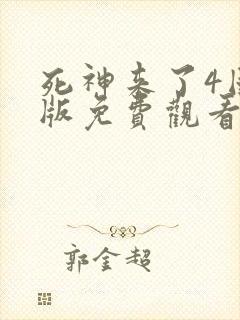 死神来了4
版免費觀看
郭金超